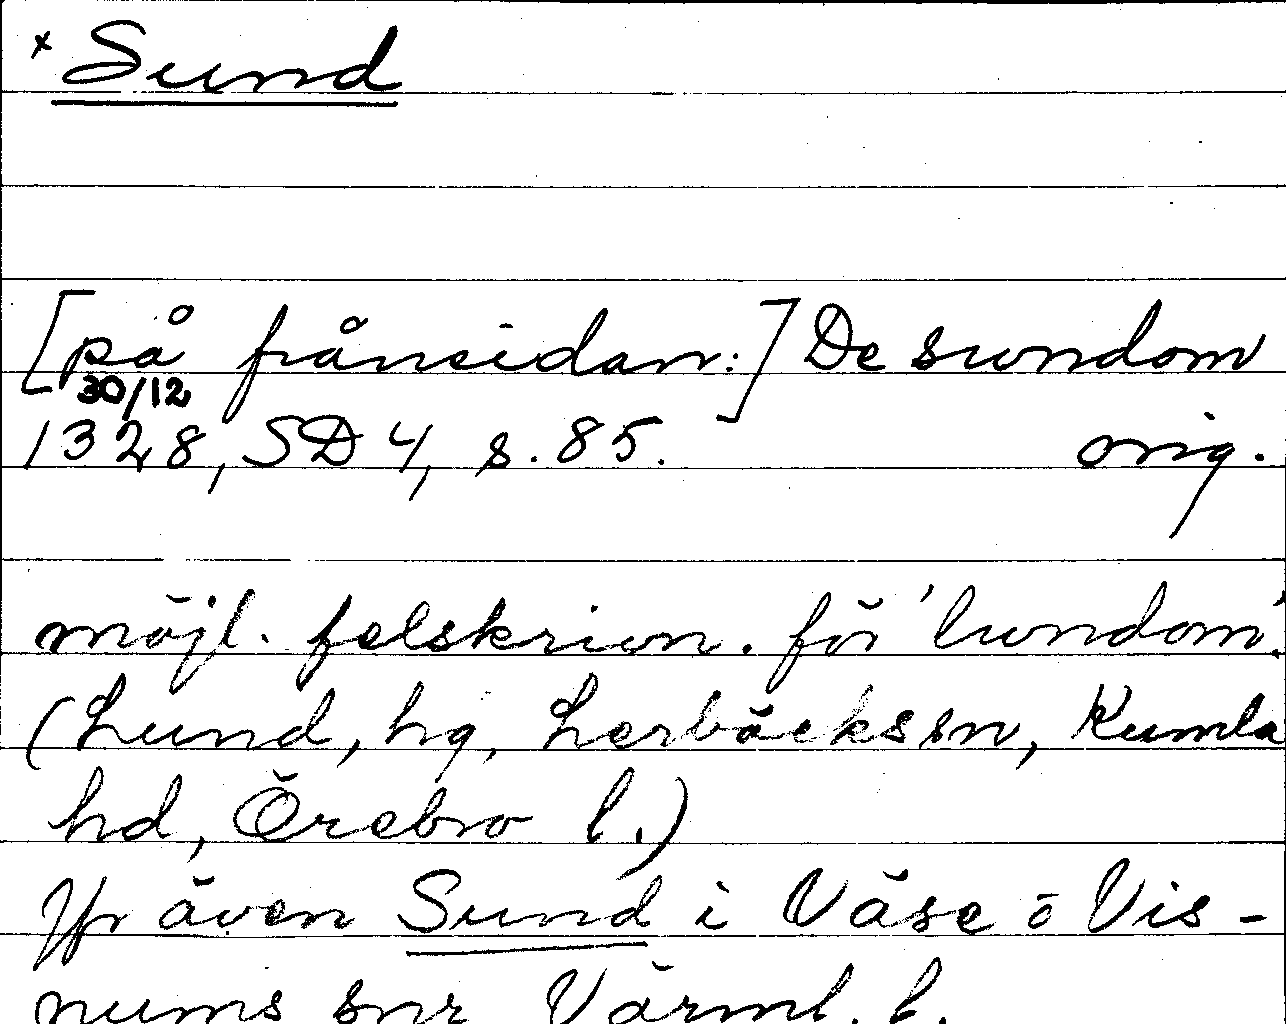 x Sund
[på frånsidan:] De sundom
30/12
1328, SD 4, s. 85. orig.
möjl. felskrivn. för 'lundom'.
(Lund, hg, Lerbäckssn, Kumla
hd, Örebro l.)
Jfr även Sund i Väse o Vis-
nums snr Värml. l.